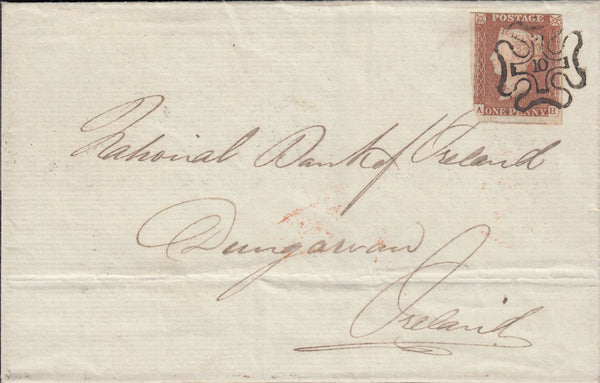 POSTAGE
10
A ONE PENNY H
National Bank of Ireland
Dungarvan
Ireland